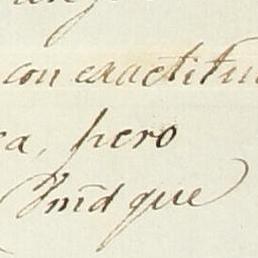 con exactitu
ca, pero
Vmd que